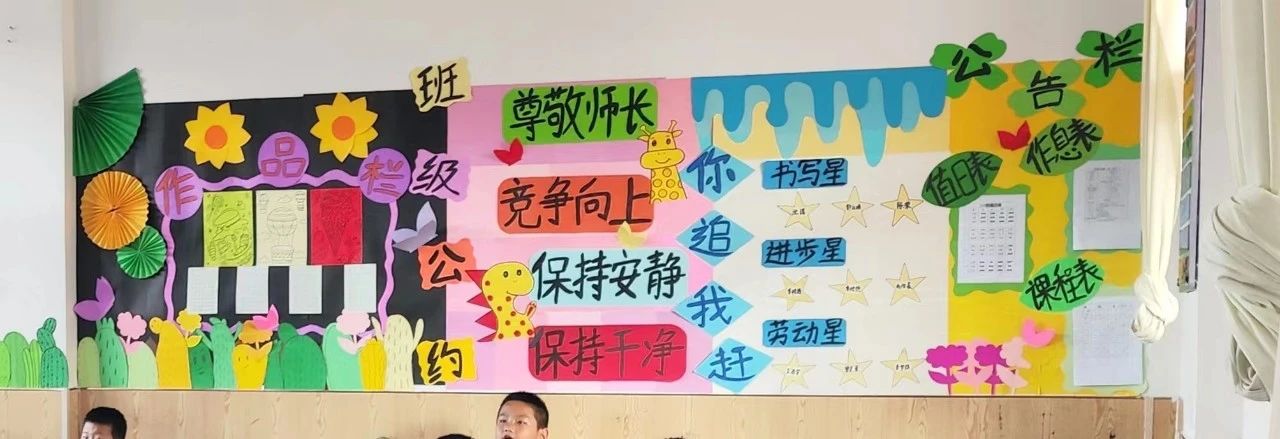 作品栏
班级公约
尊敬师长
竞争向上
保持安静
保持干净
你追我赶
书写星
进步星
劳动星
公告栏
值日表
作息表
课程表